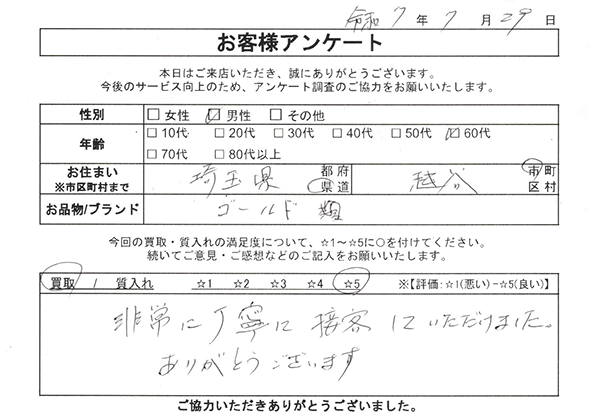 令和 7 年 7 月 29 日
お客様アンケート
本日はご来店いただき、誠にありがとうございます。
今後のサービス向上のため、アンケート調査のご協力をお願いいたします。
性別 □女性 ☑男性 □その他
年齢 □10代 □20代 □30代 □40代 □50代 ☑60代
□70代 □80代以上
お住まい
※市区町村まで 埼玉県 都府県道 越谷 市町区村
お品物/ブランド ゴールド 類
今回の買取・質入れの満足度について、☆1～☆5に○を付けてください。
続いてご意見・ご感想などのご記入をお願いいたします。
買取 / 質入れ ☆1 ☆2 ☆3 ☆4 ☆5 ※【評価:☆1(悪い)-☆5(良い)】
非常に丁寧に接客していただけました。
ありがとうございます
ご協力いただきありがとうございました。